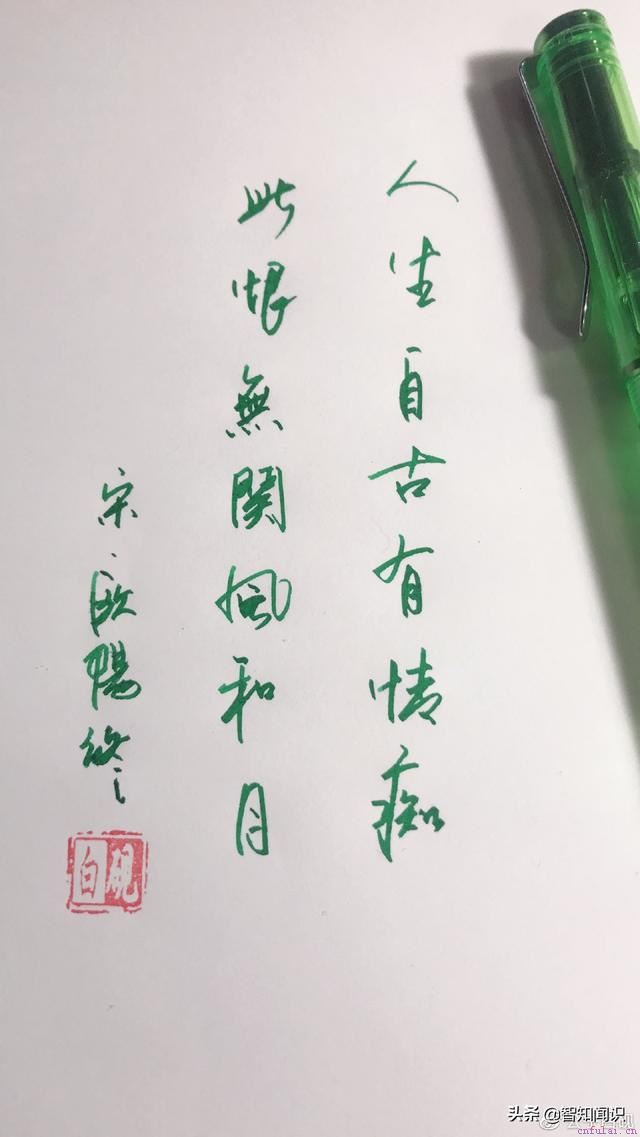 人生自古有情痴
此恨無関風和月
宋·歐陽修
硯白
头条 @智知闻识
cnfulai.cn